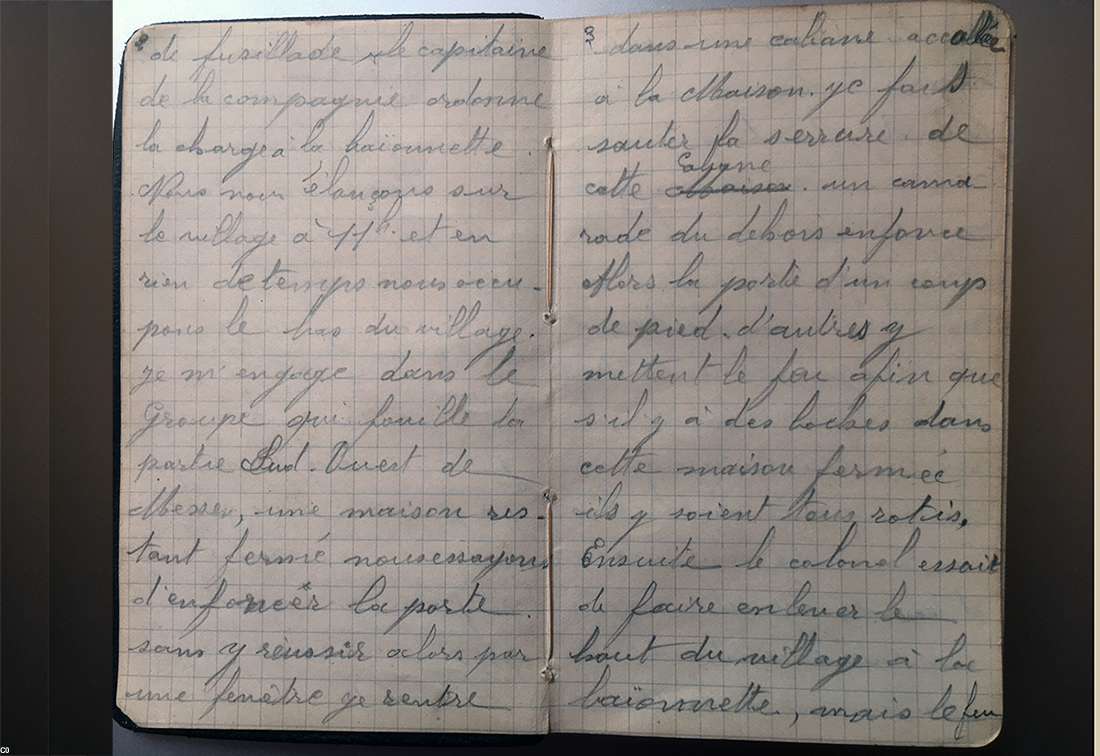 8
de fusillade, le capitaine
de la compagnie ordonne
la charge à la baïonnette.
Nous nous élançons sur
le village à 11h. et en
rien de temps nous occu-
pons le bas du village.
je m'engage dans le
Groupe qui fouille la
partie Sud-Ouest de
Messen, une maison res-
tant fermé nous essayons
d'enfoncer la porte
sans y réussir alors par
une fenêtre je rentre
9
dans une cabane accollée
à la Maison. je fais
sauter la serrure de
Cabane
cette maison. un cama
rade du dehors enfonce
Alors la porte d'un coup
de pied. d'autres y
mettent le feu afin que
s'il y à des boches dans
cette maison fermée
ils y soient tous rotis,
Ensuite le colonel essait
de faire enlever le
haut du village à la
baïonnette, mais le feu
C0